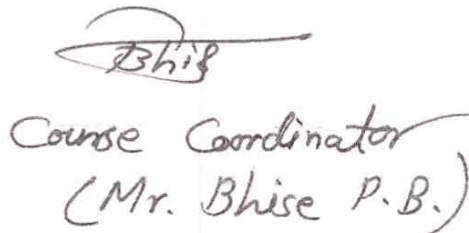 Bhise
Course Coordinator
(Mr. Bhise P.B.)